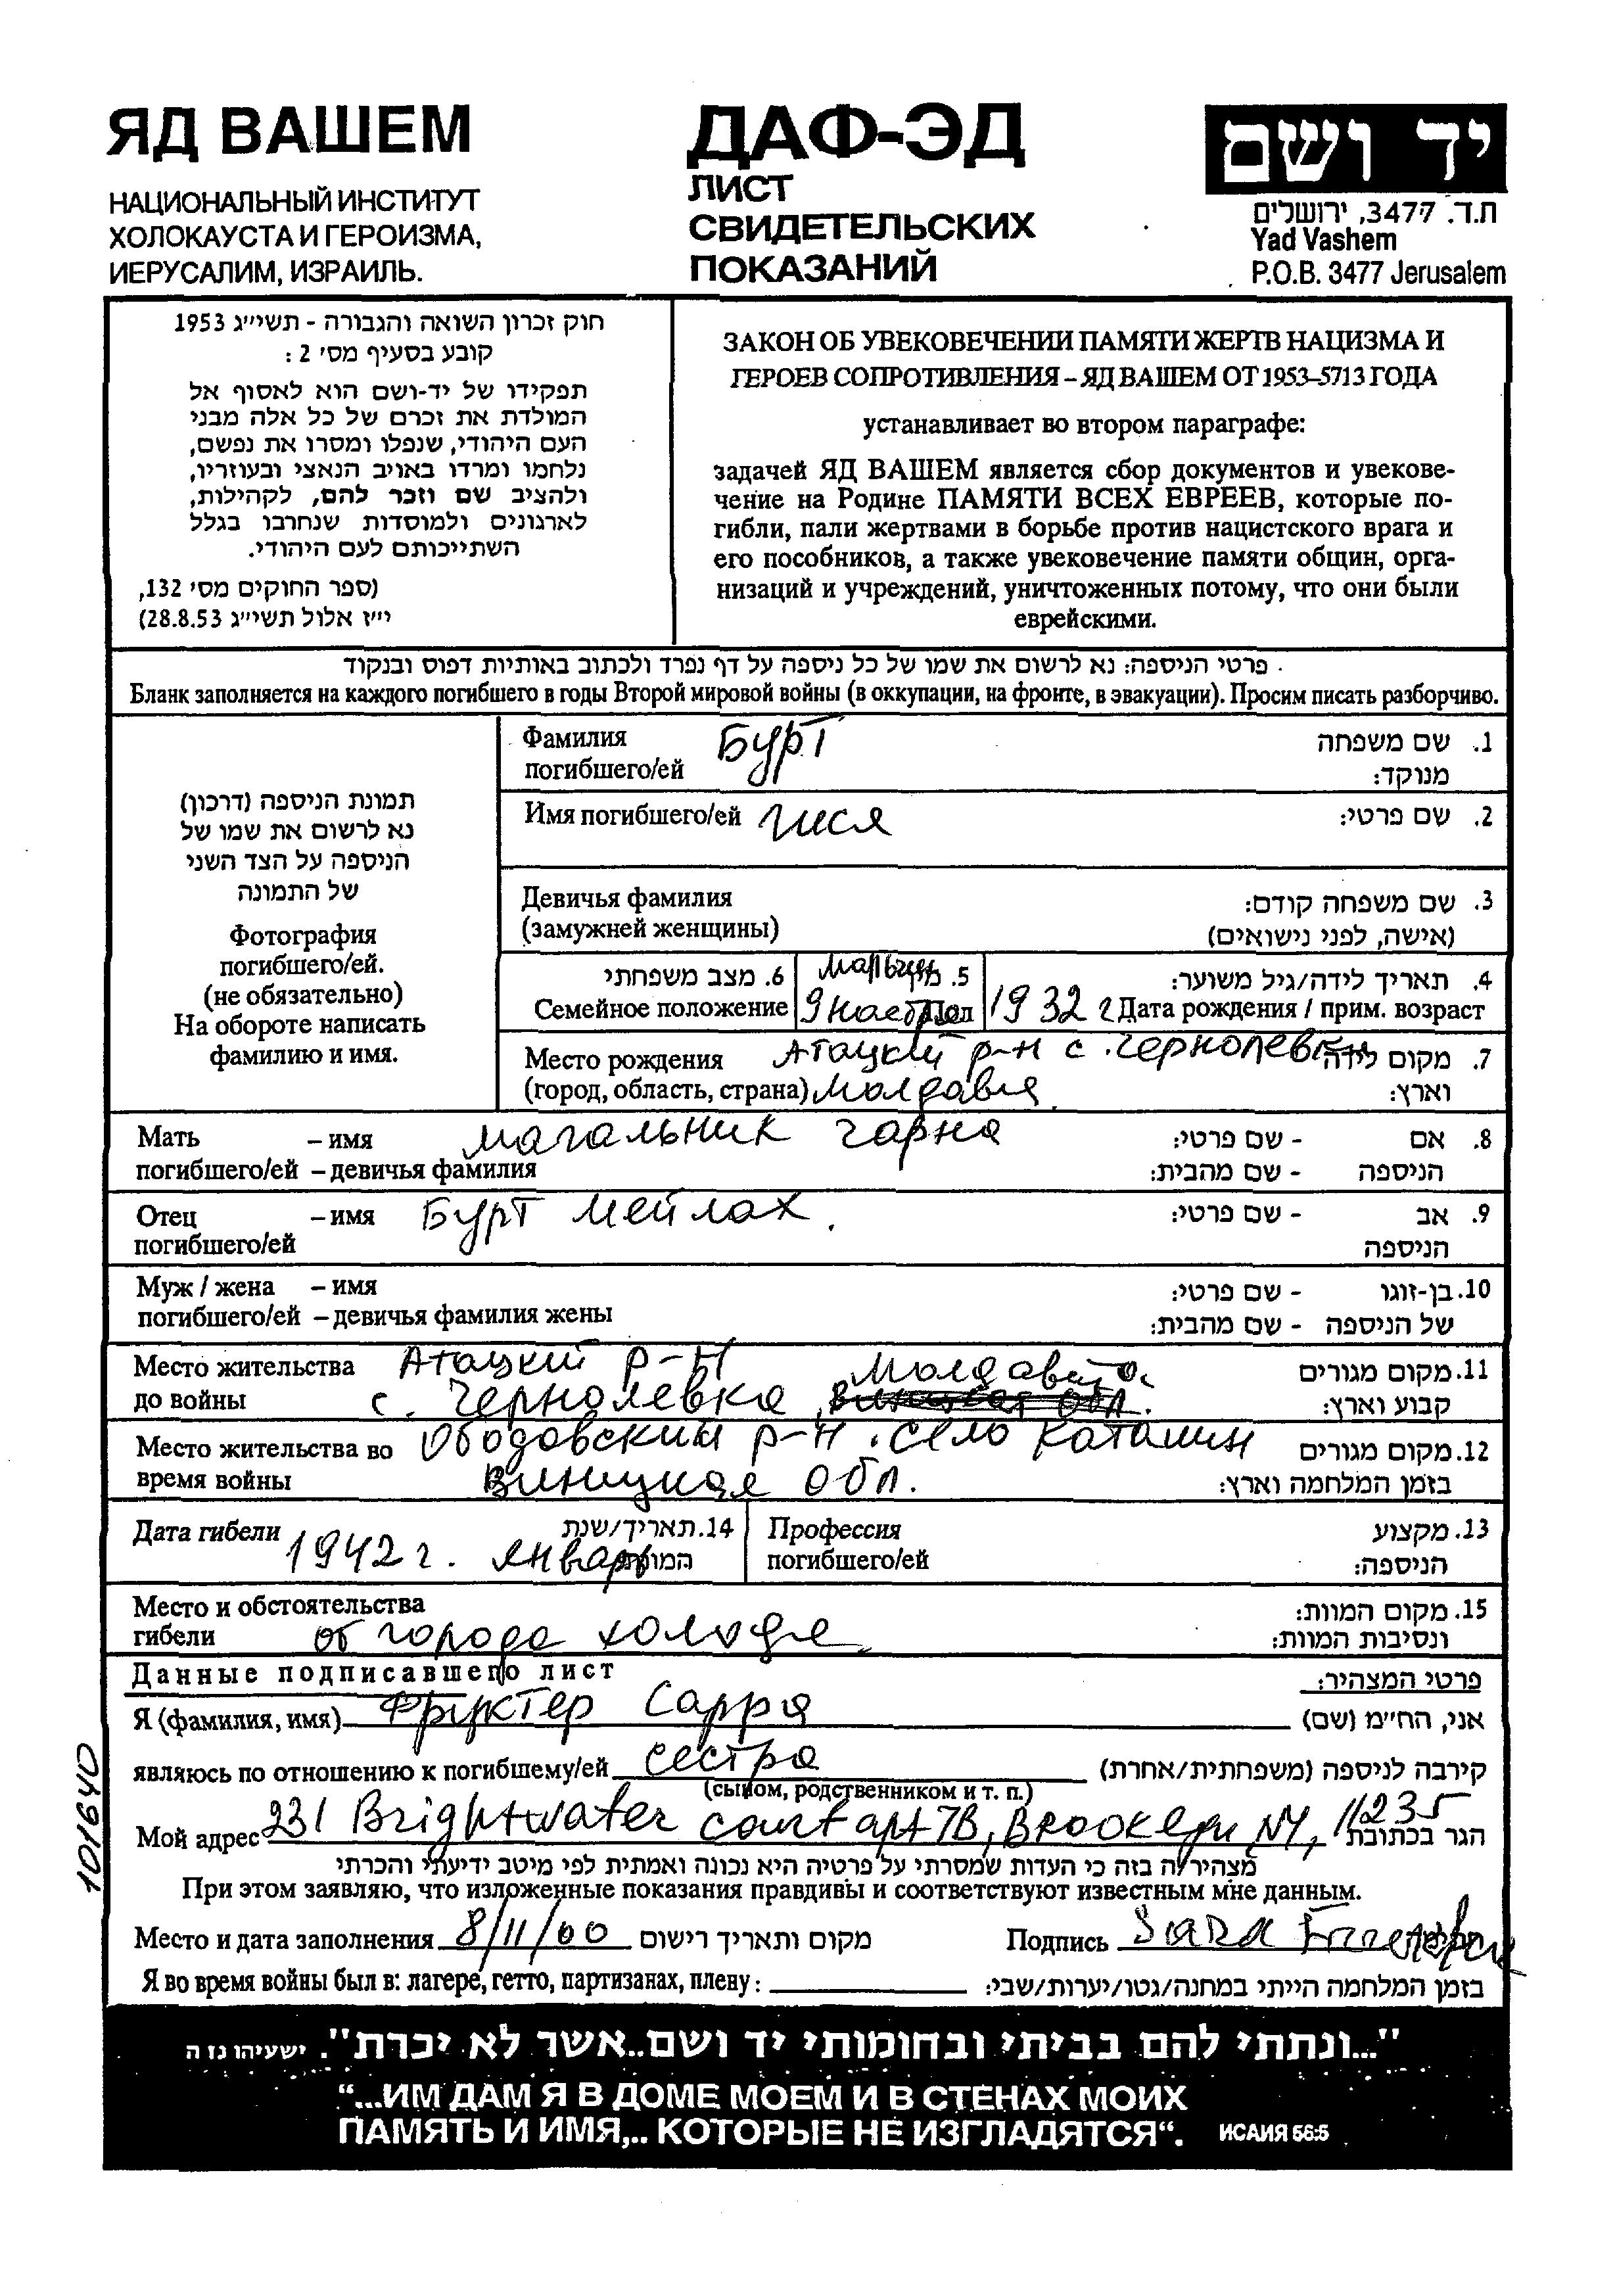 ЯД ВАШЕМ
НАЦИОНАЛЬНЫЙ ИНСТИТУТ
ХОЛОКАУСТА И ГЕРОИЗМА,
ИЕРУСАЛИМ, ИЗРАИЛЬ.
ДАФ-ЭД
ЛИСТ
СВИДЕТЕЛЬСКИХ
ПОКАЗАНИЙ
יד ושם
ת.ד. 3477, ירושלים
Yad Vashem
P.O.B. 3477 Jerusalem
חוק זכרון השואה והגבורה - תשי״ג 1953
קובע בסעיף מס׳ 2 :
תפקידו של יד-ושם הוא לאסוף אל
המולדת את זכרם של כל אלה מבני
העם היהודי, שנפלו ומסרו את נפשם,
נלחמו ומרדו באויב הנאצי ובעוזריו,
ולהציב שם וזכר להם, לקהילות,
לארגונים ולמוסדות שנחרבו בגלל
השתייכותם לעם היהודי.
(ספר החוקים מס׳ 132,
י״ז אלול תשי״ג 28.8.53)
ЗАКОН ОБ УВЕКОВЕЧЕНИИ ПАМЯТИ ЖЕРТВ НАЦИЗМА И
ГЕРОЕВ СОПРОТИВЛЕНИЯ – ЯД ВАШЕМ ОТ 1953–5713 ГОДА
устанавливает во втором параграфе:
задачей ЯД ВАШЕМ является сбор документов и увекове-
чение на Родине ПАМЯТИ ВСЕХ ЕВРЕЕВ, которые по-
гибли, пали жертвами в борьбе против нацистского врага и
его пособников, а также увековечение памяти общин, орга-
низаций и учреждений, уничтоженных потому, что они были
еврейскими.
פרטי הניספה: נא לרשום את שמו של כל ניספה על דף נפרד ולכתוב באותיות דפוס ובנקוד
Бланк заполняется на каждого погибшего в годы Второй мировой войны (в оккупации, на фронте, в эвакуации). Просим писать разборчиво.
תמונת הניספה (דרכון)
נא לרשום את שמו של
הניספה על הצד השני
של התמונה
Фотография
погибшего/ей.
(не обязательно)
На обороте написать
фамилию и имя.
Фамилия Бурт 1. שם משפחה
погибшего/ей מנוקד:
Имя погибшего/ей Гися 2. שם פרטי:
Девичья фамилия 3. שם משפחה קודם:
(замужней женщины) (אישה, לפני נישואים)
6. מצב משפחתי 5. מין 4. תאריך לידה/גיל משוער:
Семейное положение Пол 1932 г Дата рождения / прим. возраст
Место рождения Атацкий р-н с. Чернолевка 7. מקום לידה
(город, область, страна) Молдавия וארץ:
Мать – имя Магальник Чарна 8. אם - שם פרטי:
погибшего/ей – девичья фамилия הניספה - שם מהבית:
Отец – имя Бурт Мейлах. 9. אב - שם פרטי:
погибшего/ей הניספה
Муж / жена – имя 10. בן-זוגו - שם פרטי:
погибшего/ей – девичья фамилия жены של הניספה - שם מהבית:
Место жительства Атацкий р-н Молдавия 11. מקום מגורים
до войны с. Чернолевка קבוע וארץ:
Место жительства во Ободовский р-н. село Каташин 12. מקום מגורים
время войны Виницкая обл. בזמן המלחמה וארץ:
Дата гибели 1942 г. январь 14. תאריך/שנת המוות Профессия 13. מקצוע
погибшего/ей הניספה:
Место и обстоятельства 15. מקום המוות:
гибели от голода холода ונסיבות המוות:
Данные подписавшего лист פרטי המצהיר:
Я (фамилия, имя) Фрухтер Сарра אני, הח״מ (שם)
являюсь по отношению к погибшему/ей сестра קירבה לניספה (משפחתית/אחרת)
(сыном, родственником и т. п.)
Мой адрес 231 Brightwater court apt 7B, Brooklyn NY, 11235 הגר בכתובת
מצהיר/ה בזה כי העדות שמסרתי על פרטיה היא נכונה ואמתית לפי מיטב ידיעתי והכרתי
При этом заявляю, что изложенные показания правдивы и соответствуют известным мне данным.
Место и дата заполнения 8/11/00 מקום ותאריך רישום Подпись Sara
Я во время войны был в: лагере, гетто, партизанах, плену: בזמן המלחמה הייתי במחנה/גטו/יערות/שבי:
"...ונתתי להם בביתי ובחומותי יד ושם..אשר לא יכרת". ישעיהו נז ה
“...ИМ ДАМ Я В ДОМЕ МОЕМ И В СТЕНАХ МОИХ
ПАМЯТЬ И ИМЯ,.. КОТОРЫЕ НЕ ИЗГЛАДЯТСЯ“. ИСАИЯ 56:5
101640